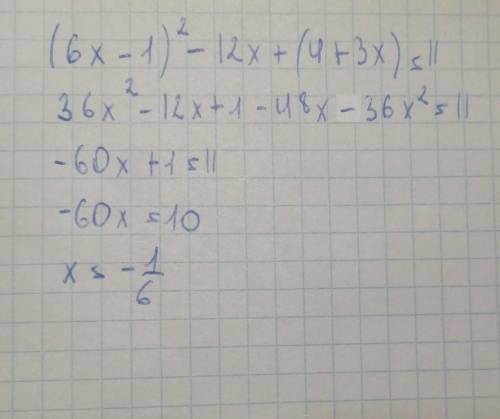 (6x - 1)² - 12x + (4 + 3x) = 11
36x² - 12x + 1 - 48x - 36x² = 11
-60x + 1 = 11
-60x = 10
x = -1/6